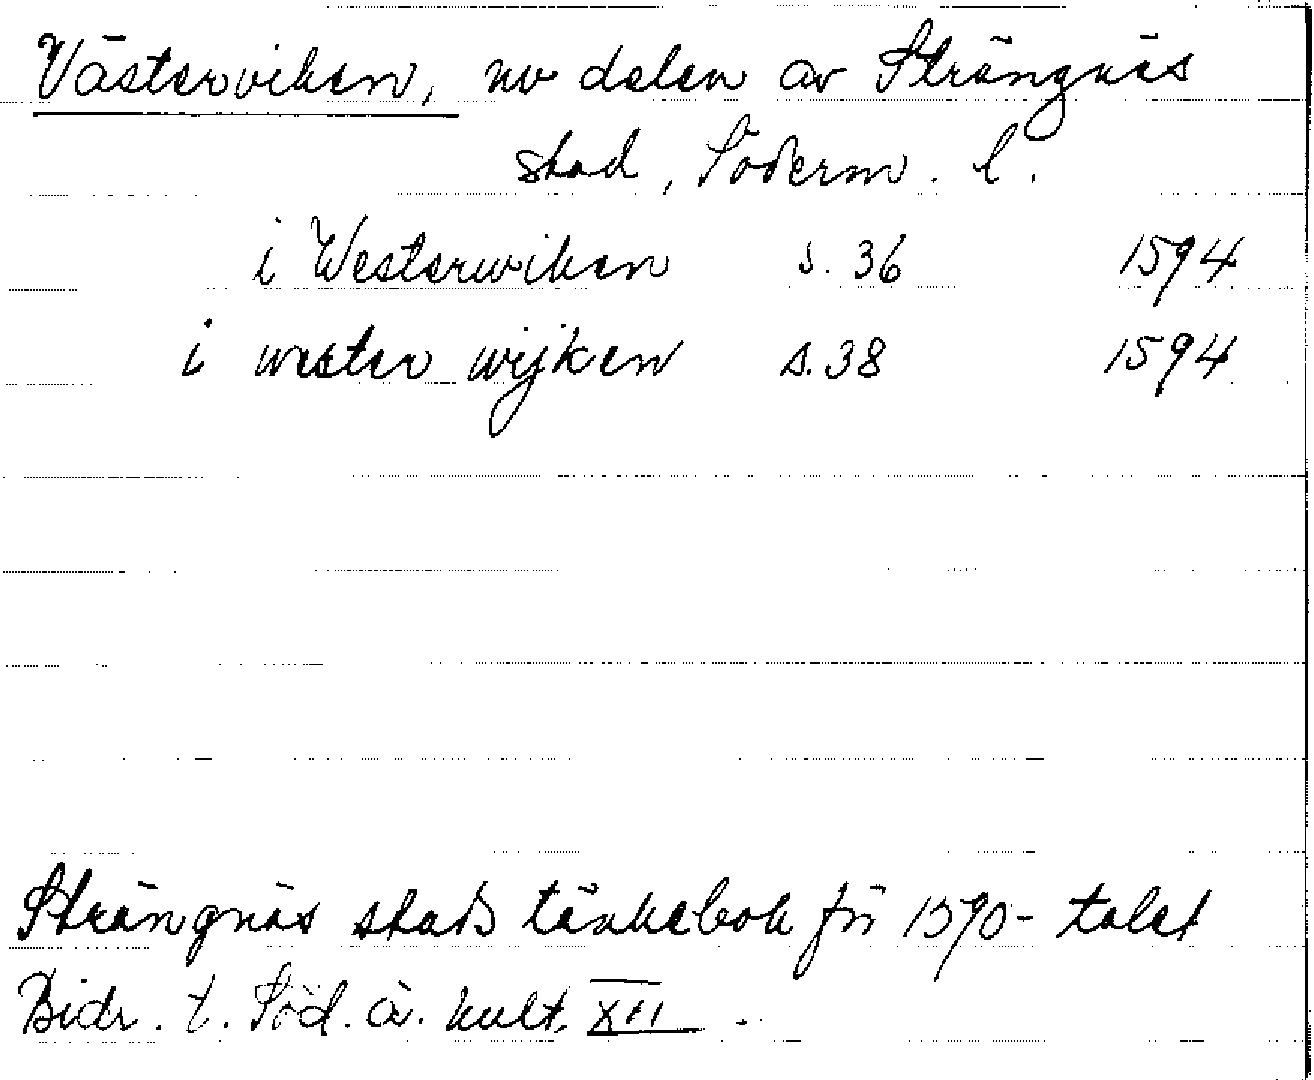 Västerviken, nv delen av Strängnäs
stad, Söderm. l.
i Westerwiken s. 36 1594
i wester wijken s. 38 1594
Strängnäs stads tänkebok för 1590-talet
Bidr. t. Söd. ä. kult. XII